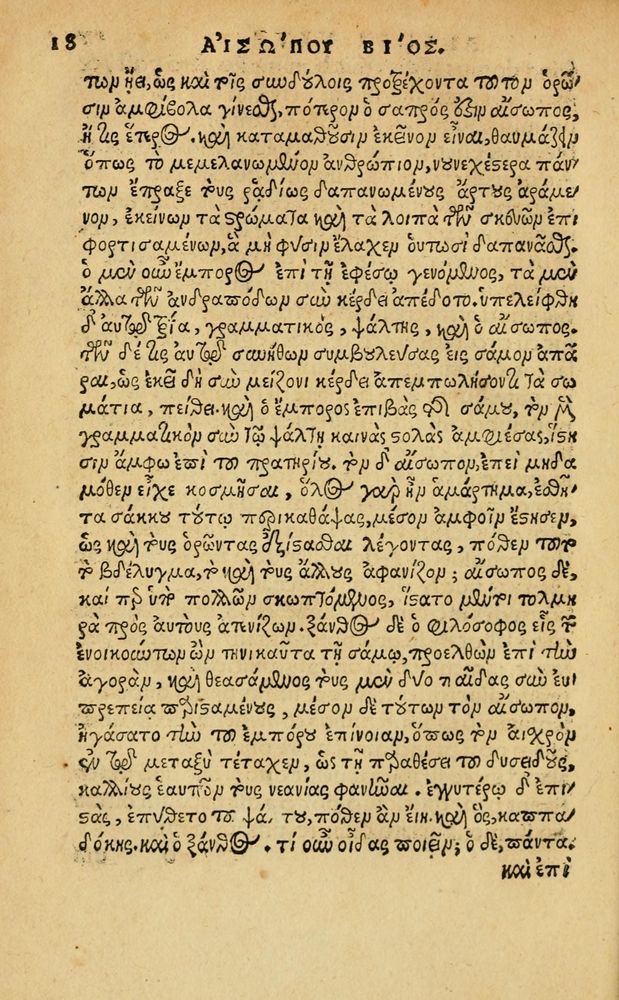 18 ΑΙΣΩΠΟΥ ΒΙΟΣ.
των ᾔει, ὡς καὶ τοῖς συνδούλοις προτρέχοντα τοῦτον ὁρῶ
σιν ἀμφίβολα γίνεσθαι, πότερον ὁ σαπρὸς ἐστὶν αἴσωπος,
ἤ τις ἕτερος. καὶ καταμαθοῦσιν ἐκεῖνον εἶναι, θαυμάζειν
ὅπως τὸ μεμελανωμένον ἀνθρώπιον, νουνεχέστερα πάν
των ἔπραξε τοὺς ῥᾳδίως δαπανωμένους ἄρτους ἀράμε
νον, ἐκείνων τὰ στρώματα καὶ τὰ λοιπὰ τῶν σκευῶν ἐπι
φορτισαμένων, ἃ μὴ φύσιν ἔλαχεν οὑτωσὶ δαπανᾶσθαι.
ὁ μὲν οὖν ἔμπορος ἐπὶ τῇ ἐφέσῳ γενόμενος, τὰ μὲν
ἄλλα τῶν ἀνδραπόδων σὺν κέρδει ἀπέδοτο. ὑπελείφθη
δ' αὐτῷ τρία, γραμματικὸς, ψάλτης, καὶ ὁ αἴσωπος.
τῶν δέ τις αὐτῷ συνήθων συμβουλεύσας εἰς σάμον ἀπᾶ
ραι, ὡς ἐκεῖ δὴ σὺν μείζονι κέρδει ἀπεμπωλήσοντι τὰ σω
μάτια, πείθει. καὶ ὁ ἔμπορος ἐπιβὰς τῆς σάμου, τὸν μὲν
γραμματικὸν σὺν τῷ ψάλτῃ καινὰς στολὰς ἀμφιέσας, ἵστη
σιν ἄμφω ἐπὶ τοῦ πρατηρίου. τὸν δ' αἴσωπον, ἐπεὶ μηδα
μόθεν εἶχε κοσμῆσαι, ὅλος γὰρ ἦν ἁμάρτημα, ἐσθῆ
τα σάκκου τούτῳ περικαθάψας, μέσον ἀμφοῖν ἔστησεν,
ὡς καὶ τοὺς ὁρῶντας ἐξίστασθαι λέγοντας, πόθεν τοῦτο
τὸ βδέλυγμα, τὸ καὶ τοὺς ἄλλους ἀφανίζον; αἴσωπος δὲ,
καίπερ ὑπὸ πολλῶν σκωπτόμενος, ἵστατο μέντοι τολμη
ρὰ πρὸς αὐτοὺς ἀτενίζων. ξάνθος δὲ ὁ φιλόσοφος εἷς τῶν
ἐνοικούντων ὢν τηνικαῦτα τῇ σάμῳ, προελθὼν ἐπὶ τὴν
ἀγορὰν, καὶ θεασάμενος τοὺς μὲν δύο παῖδας σὺν εὐ
πρεπείᾳ παρισταμένους, μέσον δὲ τούτων τὸν αἴσωπον,
ἠγάσατο τὴν τοῦ ἐμπόρου ἐπίνοιαν, ὅπως τὸν αἰσχρὸν
ἐν τῷ μεταξὺ τέταχεν, ὡς τῇ παραθέσει τοῦ δυσειδοῦς,
καλλίους ἑαυτῶν τοὺς νεανίας φανῆναι. ἐγγυτέρω δ' ἐπι
στὰς, ἐπύθετο τοῦ ψάλτου, πόθεν ἂν εἴη. καὶ ὃς, καππα
δόκης. καὶ ὁ ξάνθος. τί οὖν οἶδας ποιεῖν; ὁ δὲ, πάντα.
καὶ ἐπὶ